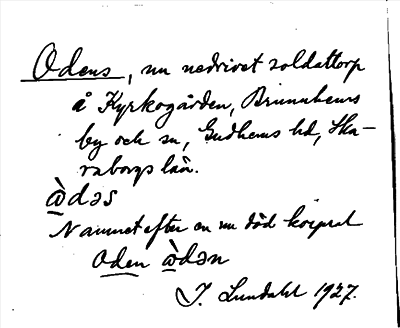 Odens, nu nedrivet soldattorp
å Kyrkogården, Brunnhems
by och sn, Gudhems hd, Ska-
raborgs län.
ὼdəs
Namnet efter en nu död korpral
Oden ὼdən
J. Lundahl 1927.